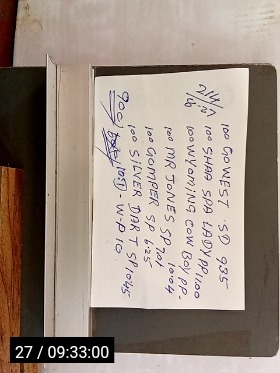 100 GOWEST SP 935
100 SHAR SPA LADY PP1100
100 WYOMING COWBOY PP-
100 MR JONES SP 701
1004
100 GOMPER SP 625
100 SILVER DART SP1045
900) - W-P 10.
27 / 09:33:00